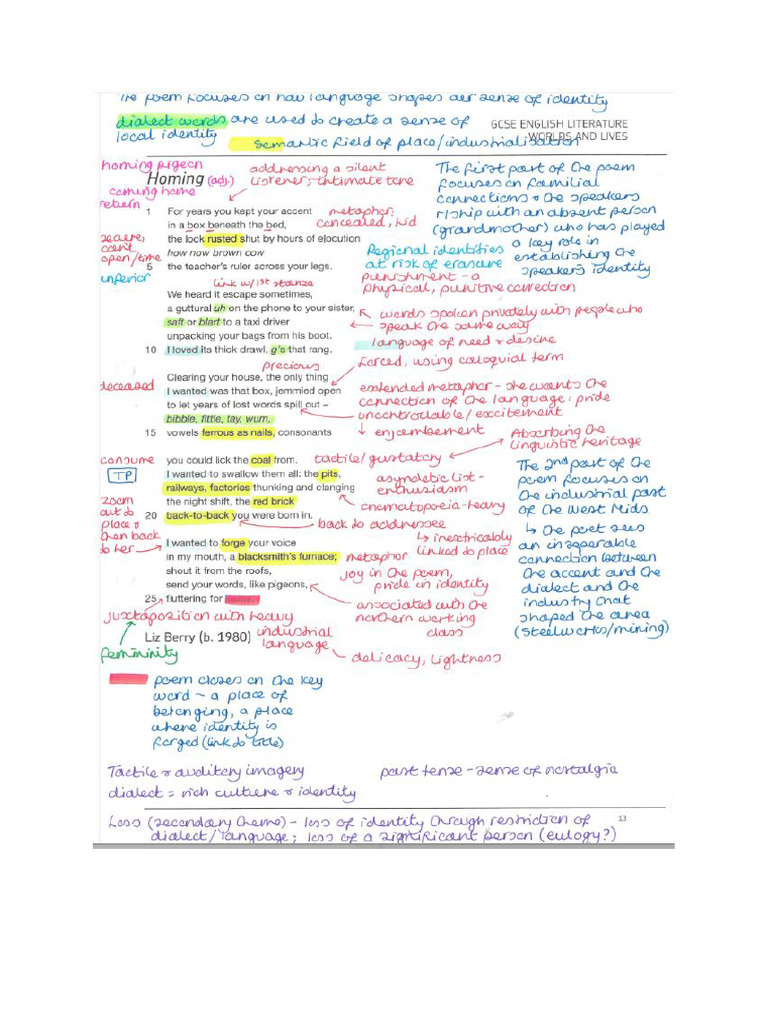 The poem focuses on how language shapes our sense of identity
dialect words are used to create a sense of
local identity
GCSE ENGLISH LITERATURE
WORLDS AND LIVES
semantic field of place/industrialisation
homing pigeon
Homing (adj.)
coming home
return
addressing a silent
listener; intimate tone
The first part of the poem
focuses on familial
connections & the speakers
r'ship with an absent person
(grandmother) who has played
a key role in
establishing the
speaker's identity
1 For years you kept your accent
in a box beneath the bed,
the lock rusted shut by hours of elocution
how now brown cow
5 the teacher's ruler across your legs.
metaphor;
concealed, hid
secure,
cant
open/time
inferior
Regional identities
at risk of erasure
punishment - a
physical, punitive correction
link w/ 1st stanza
We heard it escape sometimes,
a guttural uh on the phone to your sister,
saft or blart to a taxi driver
unpacking your bags from his boot.
10 I loved its thick drawl, g's that rang.
words spoken privately with people who
speak the same way
language of need & desire
forced, using colloquial term
precious
deceased
Clearing your house, the only thing
I wanted was that box, jemmied open
to let years of lost words spill out –
bibble, fittle, tay, wum,
15 vowels ferrous as nails, consonants
extended metaphor - she wants the
connection of the language; pride
uncontrollable/excitement
↓ enjambement
Absorbing the
linguistic heritage
consume
TP
you could lick the coal from.
I wanted to swallow them all: the pits,
railways, factories thunking and clanging
the night shift, the red brick
20 back-to-back you were born in.
tactile/gustatory
asyndetic list -
enthusiasm
onomatopoeia-heavy
back to addressee
The 2nd part of the
poem focuses on
the industrial past
of the West Mids.
↳ the poet sees
an inseparable
connection between
the accent and the
dialect and the
industry that
shaped the area
(steelworks/mining)
zoom
out to
place &
then back
to her
I wanted to forge your voice
in my mouth, a blacksmith's furnace;
shout it from the roofs,
send your words, like pigeons,
25 fluttering for
↳ inextricably
linked to place
metaphor
joy in the poem,
pride in identity
associated with the
northern working
class
juxtaposition with heavy
industrial
language
femininity
Liz Berry (b. 1980)
delicacy, lightness
poem closes on the key
word - a place of
belonging, a place
where identity is
forged (link to title)
Tactile & auditory imagery
past tense - sense of nostalgia
dialect = rich culture & identity
Loss (secondary theme) - loss of identity through restriction of
dialect/language; loss of a significant person (eulogy?)
13